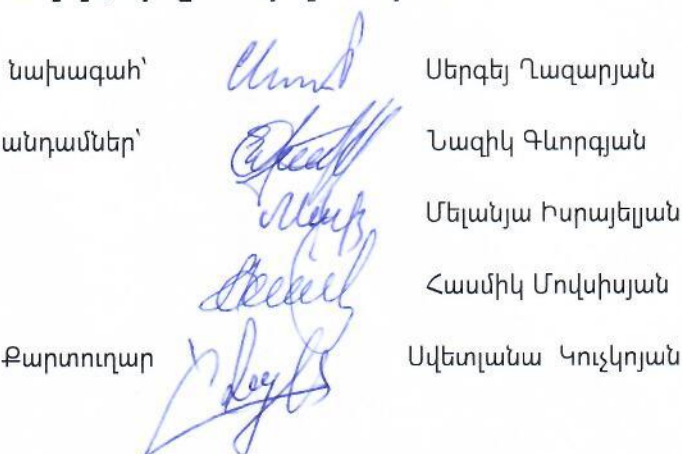 նախագահ՝ Սերգեյ Ղազարյան
անդամներ՝ Նազիկ Գևորգյան
Մելանյա Իսրայելյան
Հասմիկ Մովսիսյան
Քարտուղար Սվետլանա Կուչկոյան